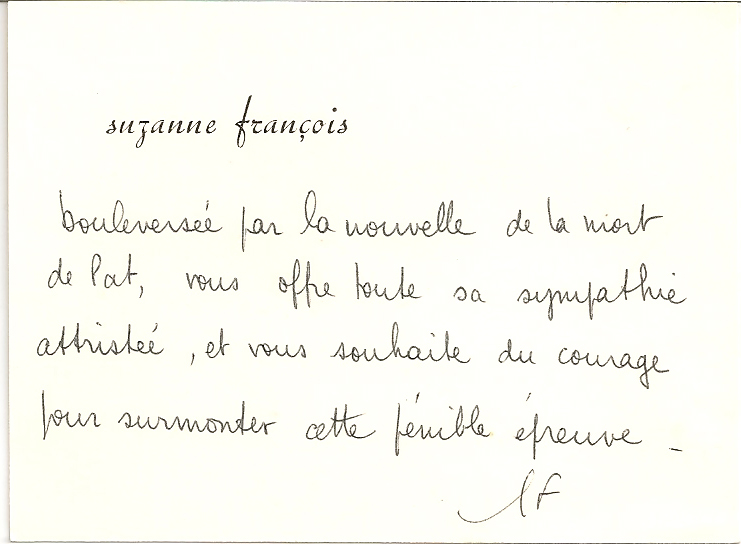 suzanne françois
bouleversée par la nouvelle de la mort
de Pat, vous offre toute sa sympathie
attristée, et vous souhaite du courage
pour surmonter cette pénible épreuve _
SF